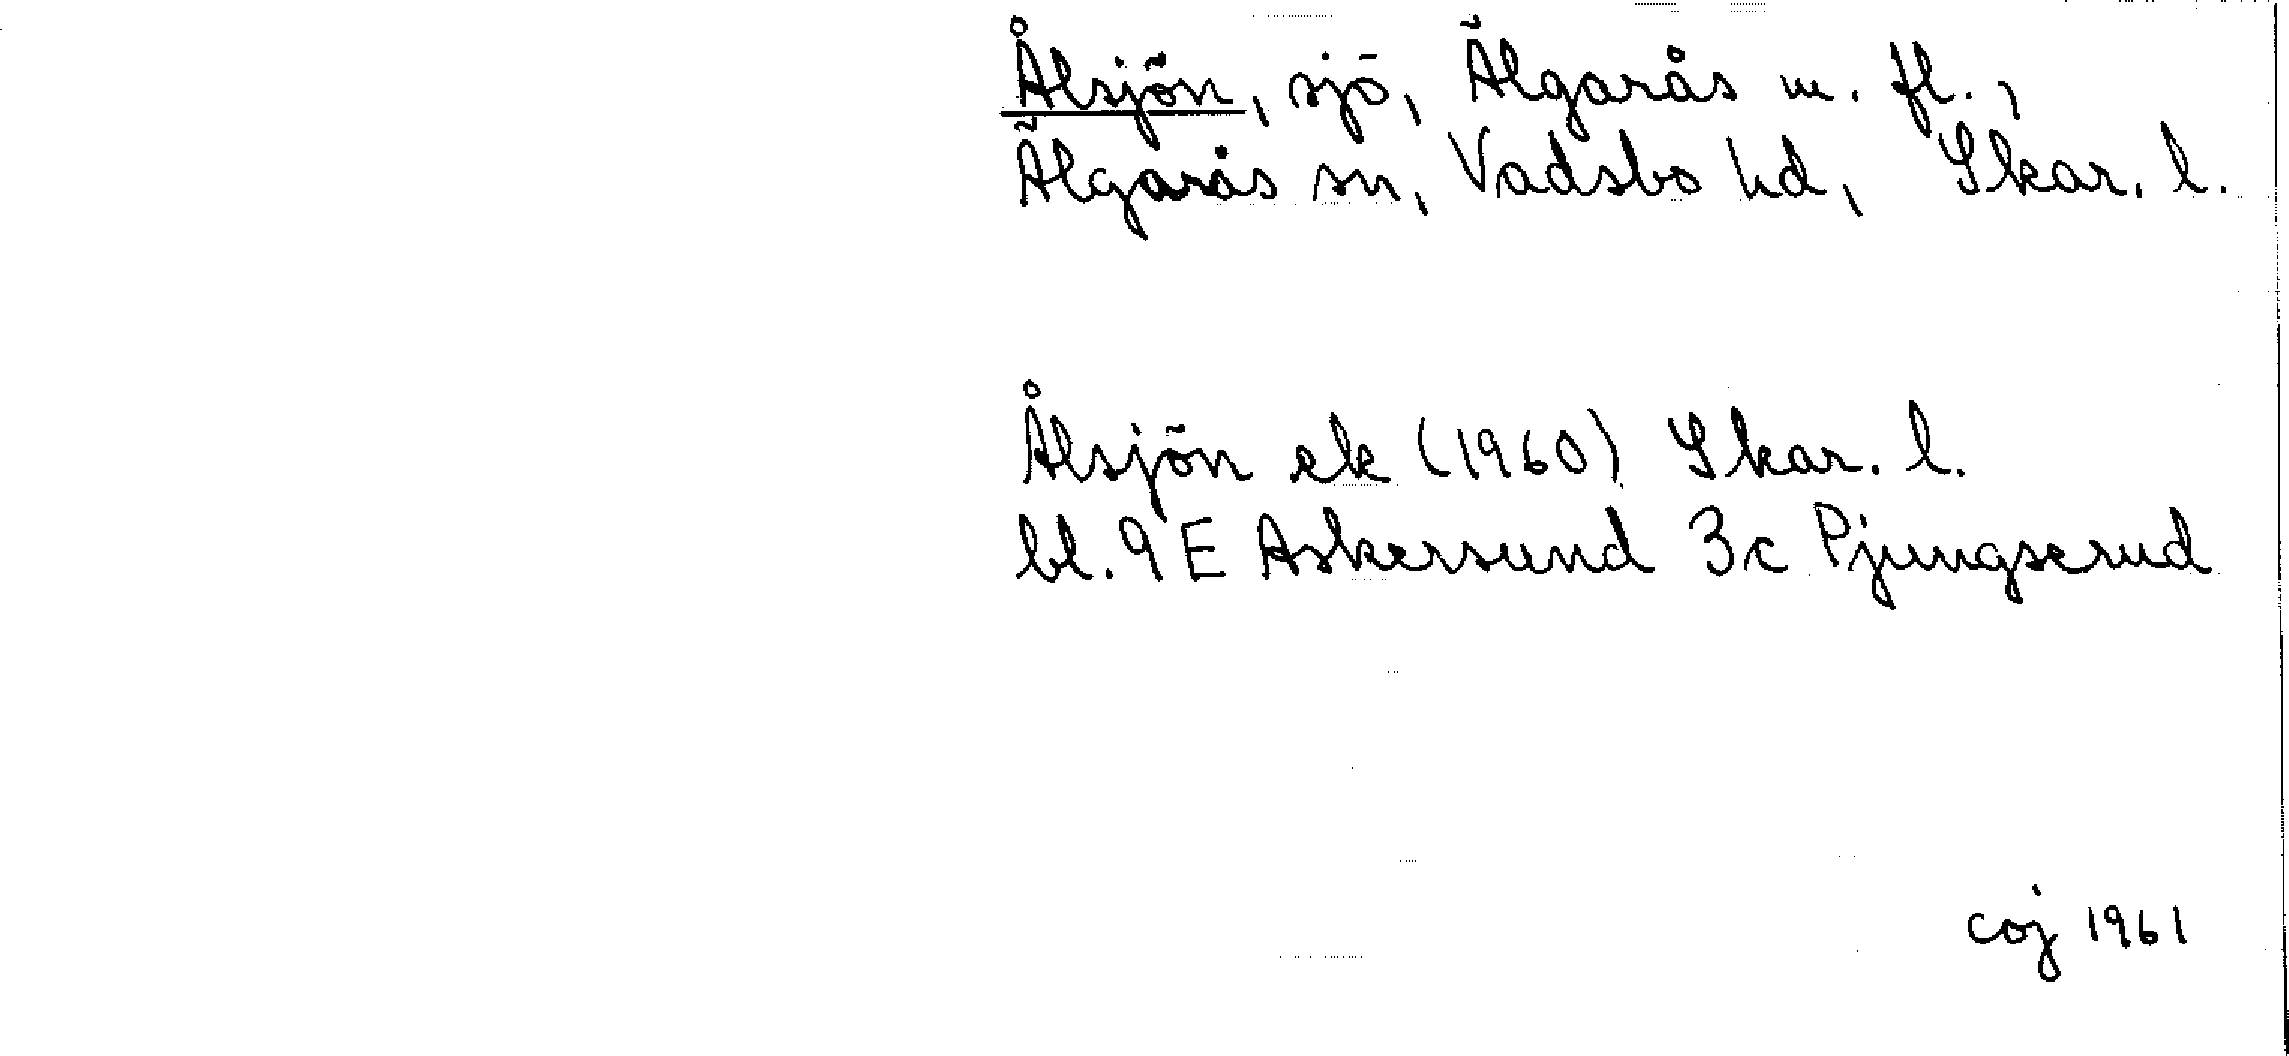 Ålsjön, sjö, Älgarås m. fl.,
Älgarås sn, Vadsbo hd, Skar. l.
Ålsjön ek (1960) Skar. l.
bl. 9 E Askersund 3c Pjungserud
coj 1961